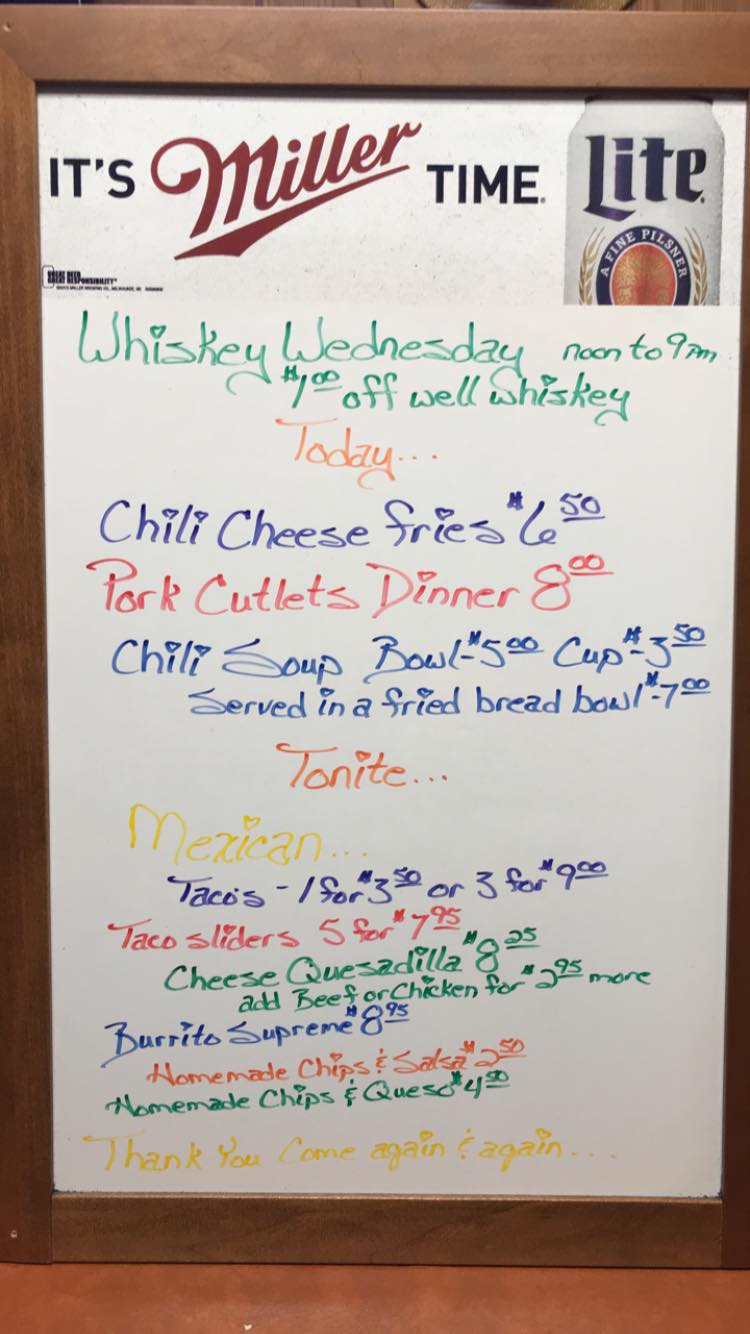 IT'S Miller TIME.
Lite
A FINE PILSNER
GREAT BEER
GREAT RESPONSIBILITY
Whiskey Wednesday noon to 9pm
$1.00 off well whiskey
Today...
Chili Cheese fries $6.50
Pork Cutlets Dinner 8.00
Chili Soup Bowl-$5.00 Cup-$3.50
Served in a fried bread bowl-$7.00
Tonite...
Mexican...
Taco's - 1 for $3.50 or 3 for $9.00
Taco sliders 5 for $7.95
Cheese Quesadilla $8.25
add Beef or Chicken for $2.95 more
Burrito Supreme $8.95
Homemade Chips & Salsa $2.50
Homemade Chips & Queso $4.50
Thank You Come again & again....